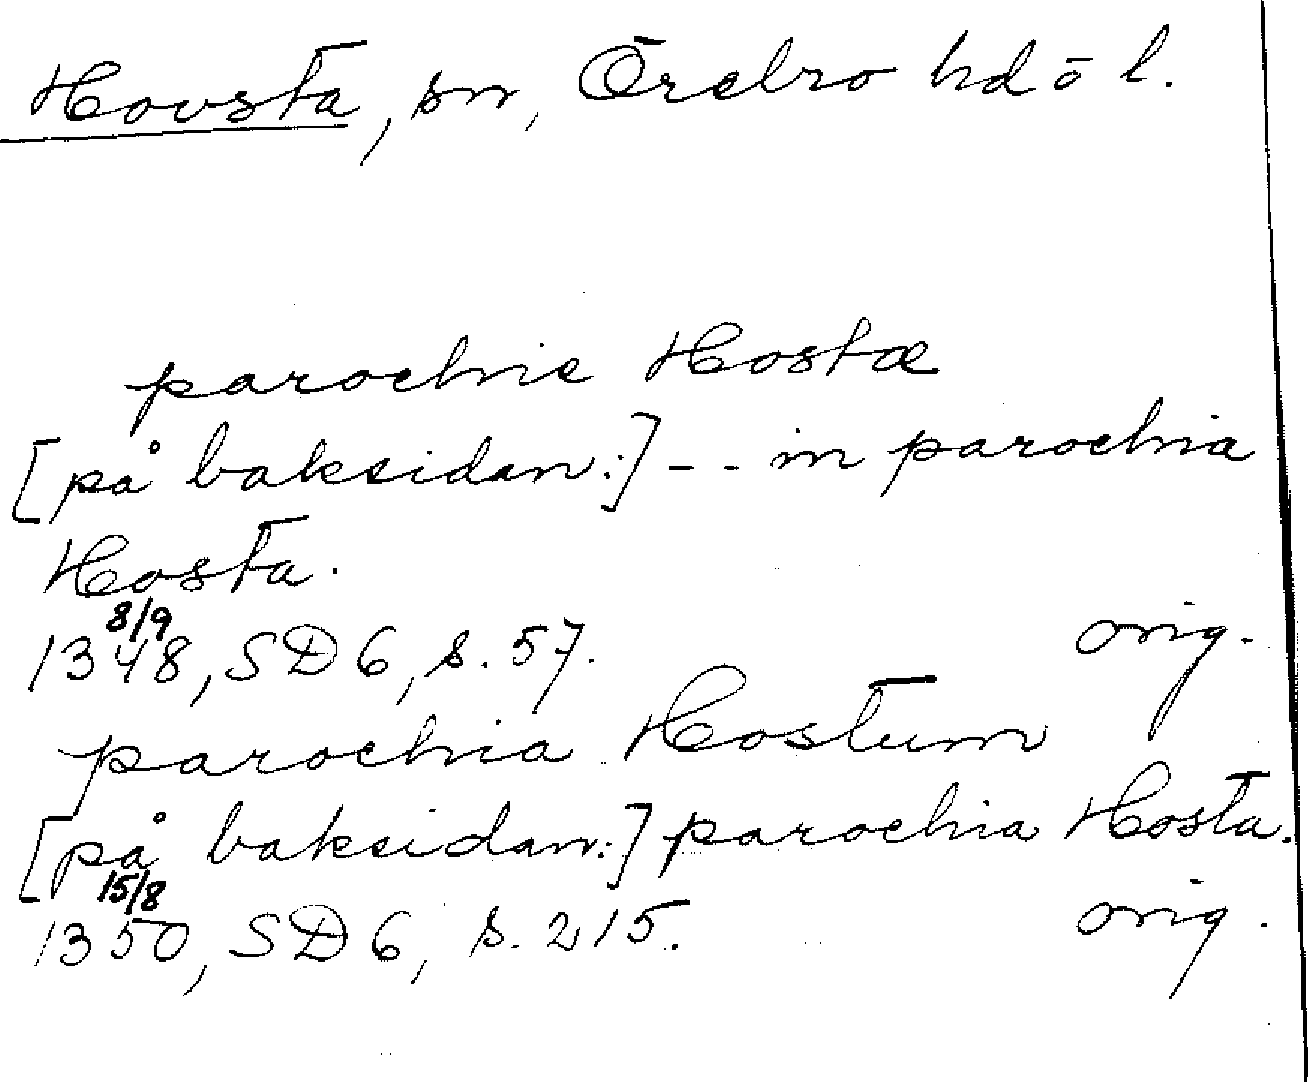 Hovsta, sn, Örebro hd ō l.
parochie Hostæ
[på baksidan:] -- in parochia
Hosta.
8/9
1348, SD 6, s. 57. orig.
parochia Hostum
[på baksidan:] parochia Hosta.
15/8
1350, SD 6, s. 215. orig.